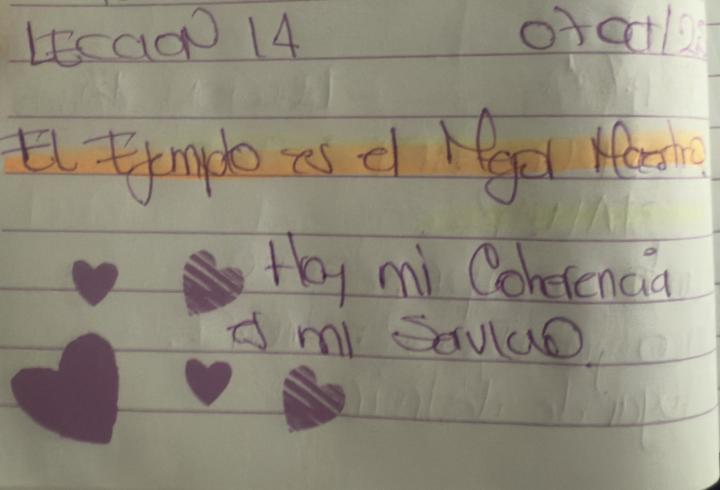 Leccion 14 07 oct/22
El Ejemplo es el Mejor Maestro.
Hoy mi Coherencia
es mi Servicio.